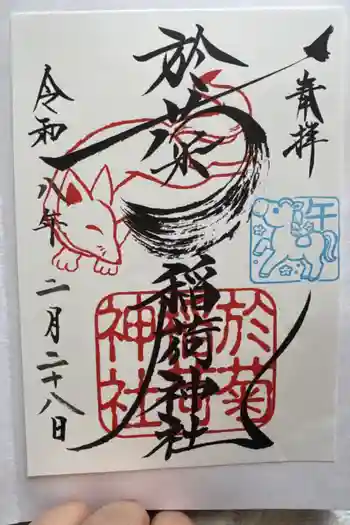 奉拝
午
於菊稲荷神社
於菊稲荷神社
令和八年二月二十八日